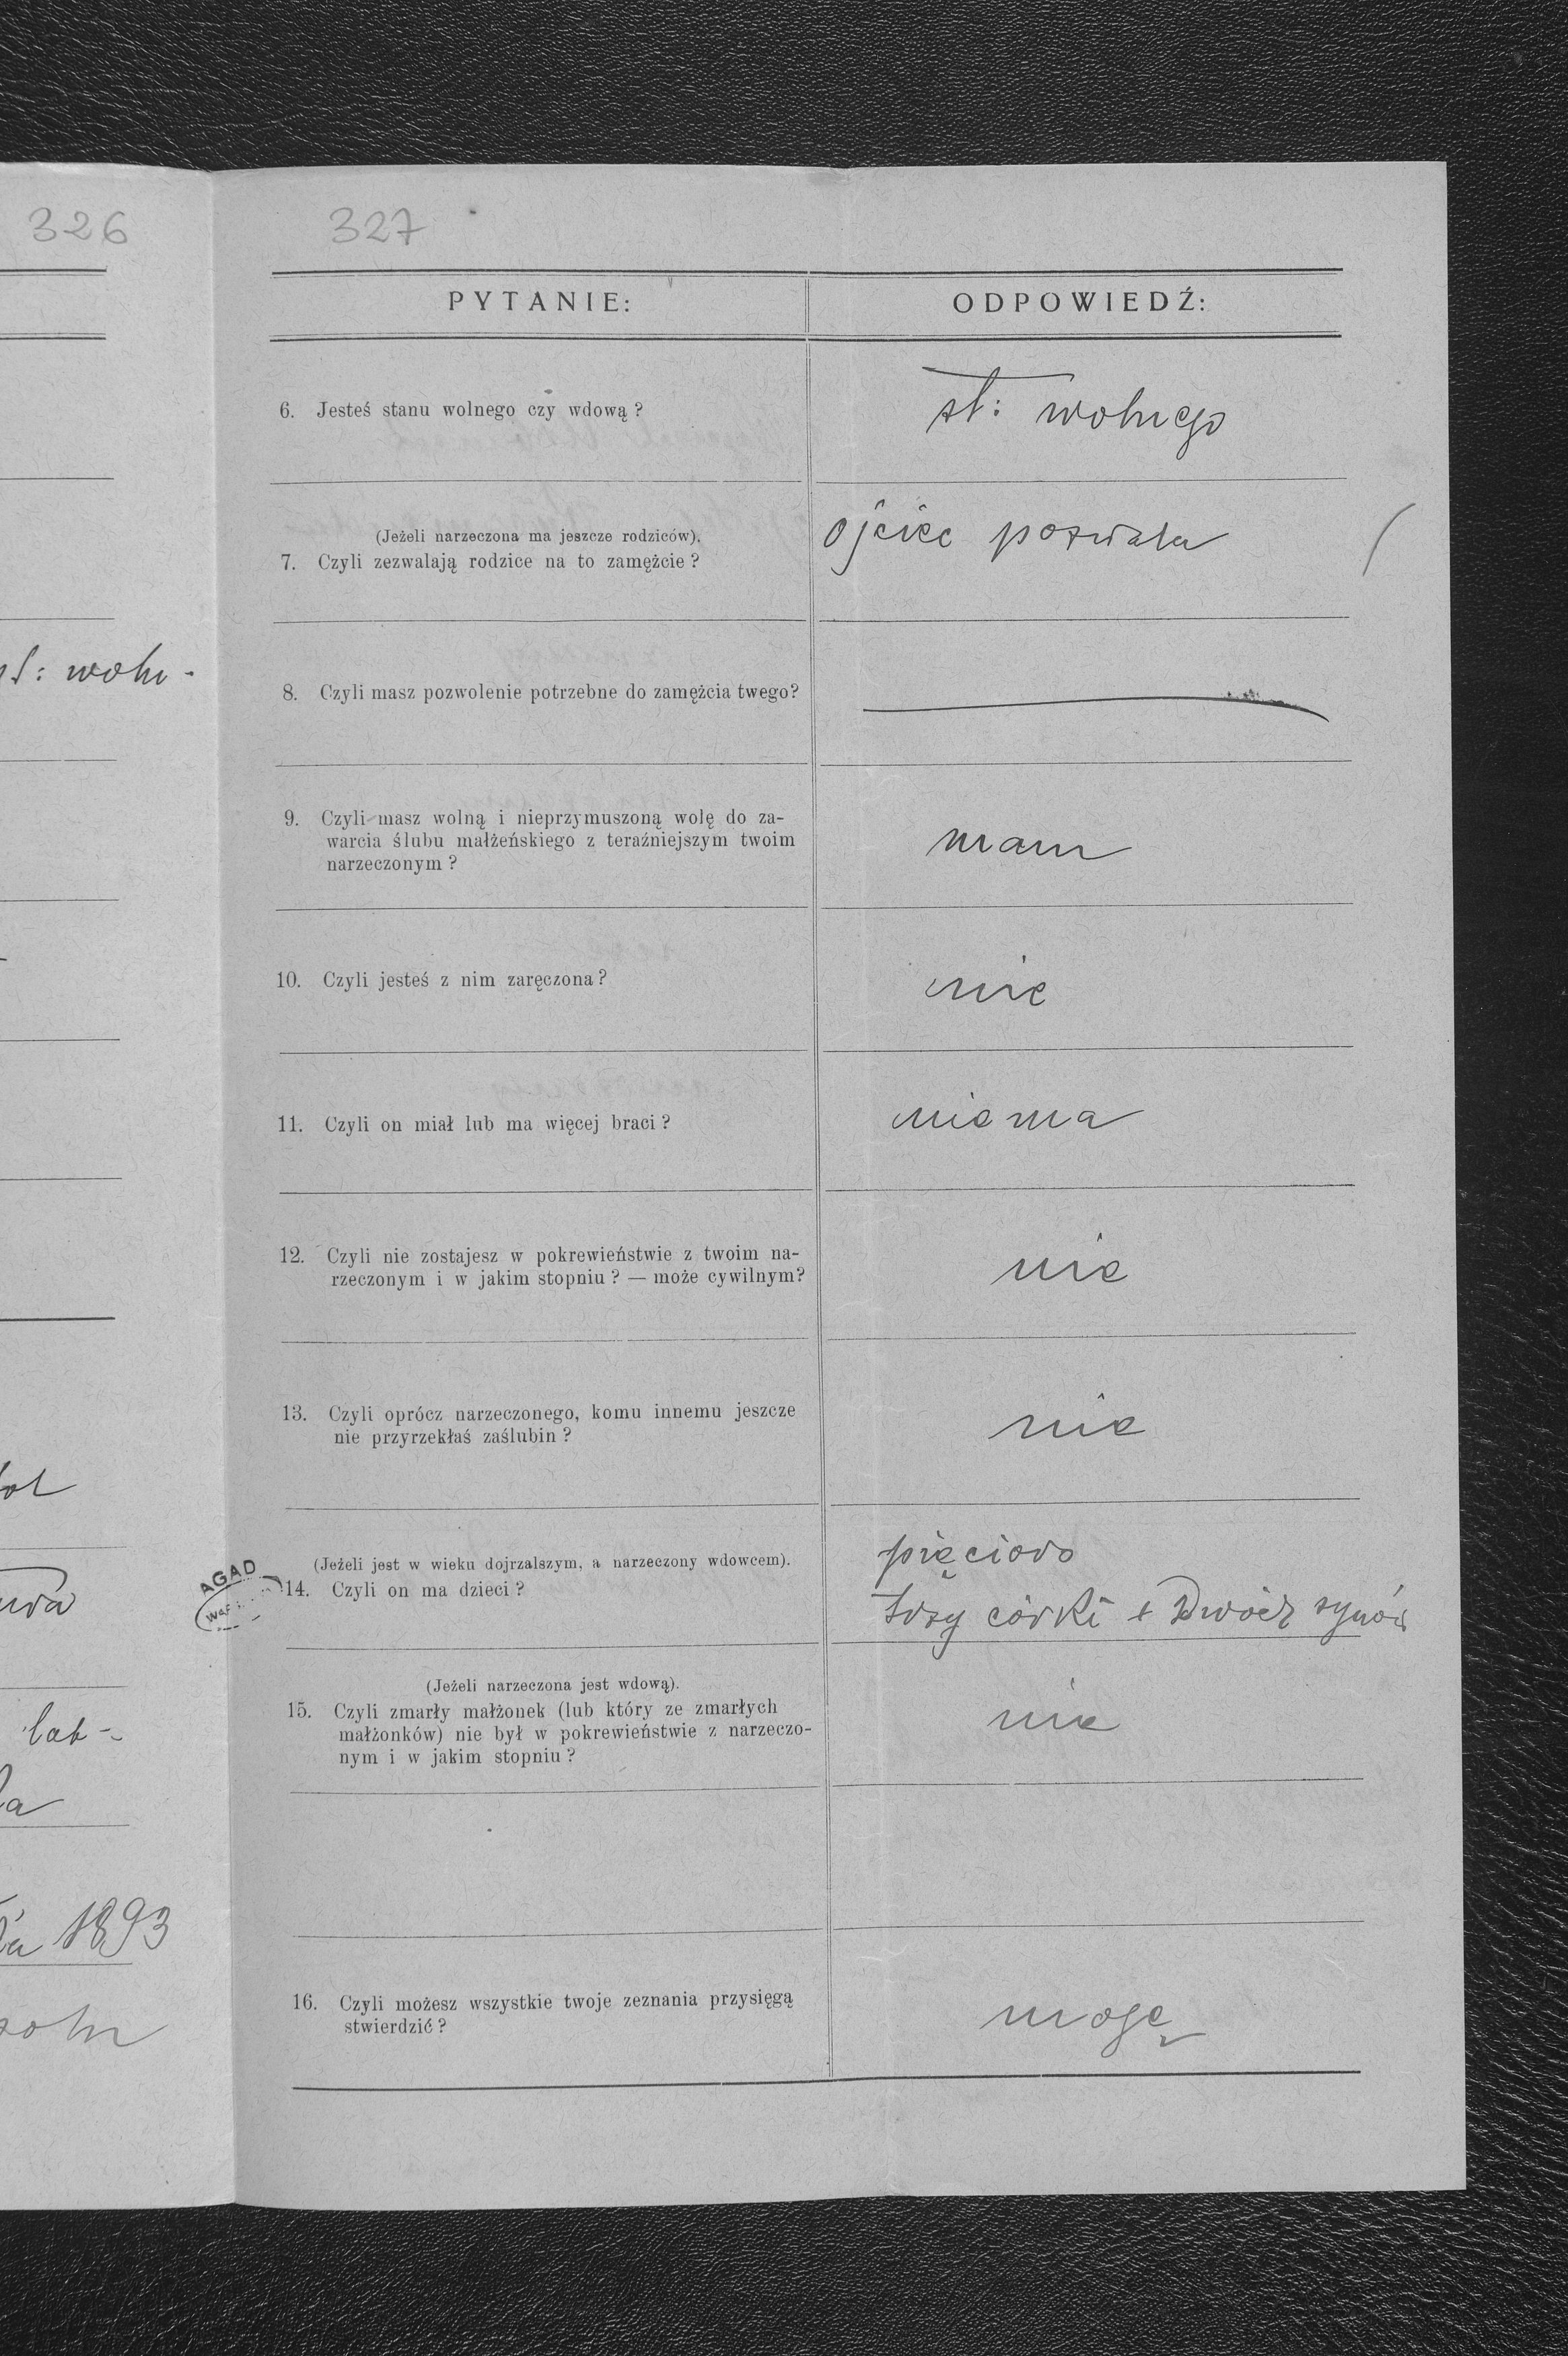 326
327
PYTANIE:
ODPOWIEDŹ:
6. Jesteś stanu wolnego czy wdową?
st: wolnego
(Jeżeli narzeczona ma jeszcze rodziców).
7. Czyli zezwalają rodzice na to zamęźcie?
ojciec pozwala
8. Czyli masz pozwolenie potrzebne do zamęźcia twego?
9. Czyli masz wolną i nieprzymuszoną wolę do za-
warcia ślubu małżeńskiego z teraźniejszym twoim
narzeczonym?
mam
10. Czyli jesteś z nim zaręczona?
nie
11. Czyli on miał lub ma więcej braci?
niema
12. Czyli nie zostajesz w pokrewieństwie z twoim na-
rzeczonym i w jakim stopniu? — może cywilnym?
nie
13. Czyli oprócz narzeczonego, komu innemu jeszcze
nie przyrzekłaś zaślubin?
nie
(Jeżeli jest w wieku dojrzalszym, a narzeczony wdowcem).
14. Czyli on ma dzieci?
pięcioro
trzy córki + Dwóch synów
(Jeżeli narzeczona jest wdową).
15. Czyli zmarły małżonek (lub który ze zmarłych
małżonków) nie był w pokrewieństwie z narzeczo-
nym i w jakim stopniu?
nie
16. Czyli możesz wszystkie twoje zeznania przysięgą
stwierdzić?
mogę
st: woln-
lat -
1893
AGAD